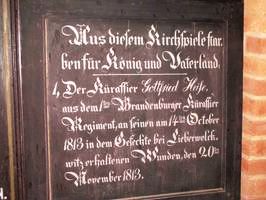 Aus diesem Kirchspiele star,
ben für König und Vaterland,
1, Der Kürassier Gottfried Hesse,
aus dem 1ten Brandenburger Kürassier
Regiment, an seinen am 14ten October
1813 in dem Gefechte bei Lieberwolck,
witz erhaltenen Wunden, den 20ten
November 1813.